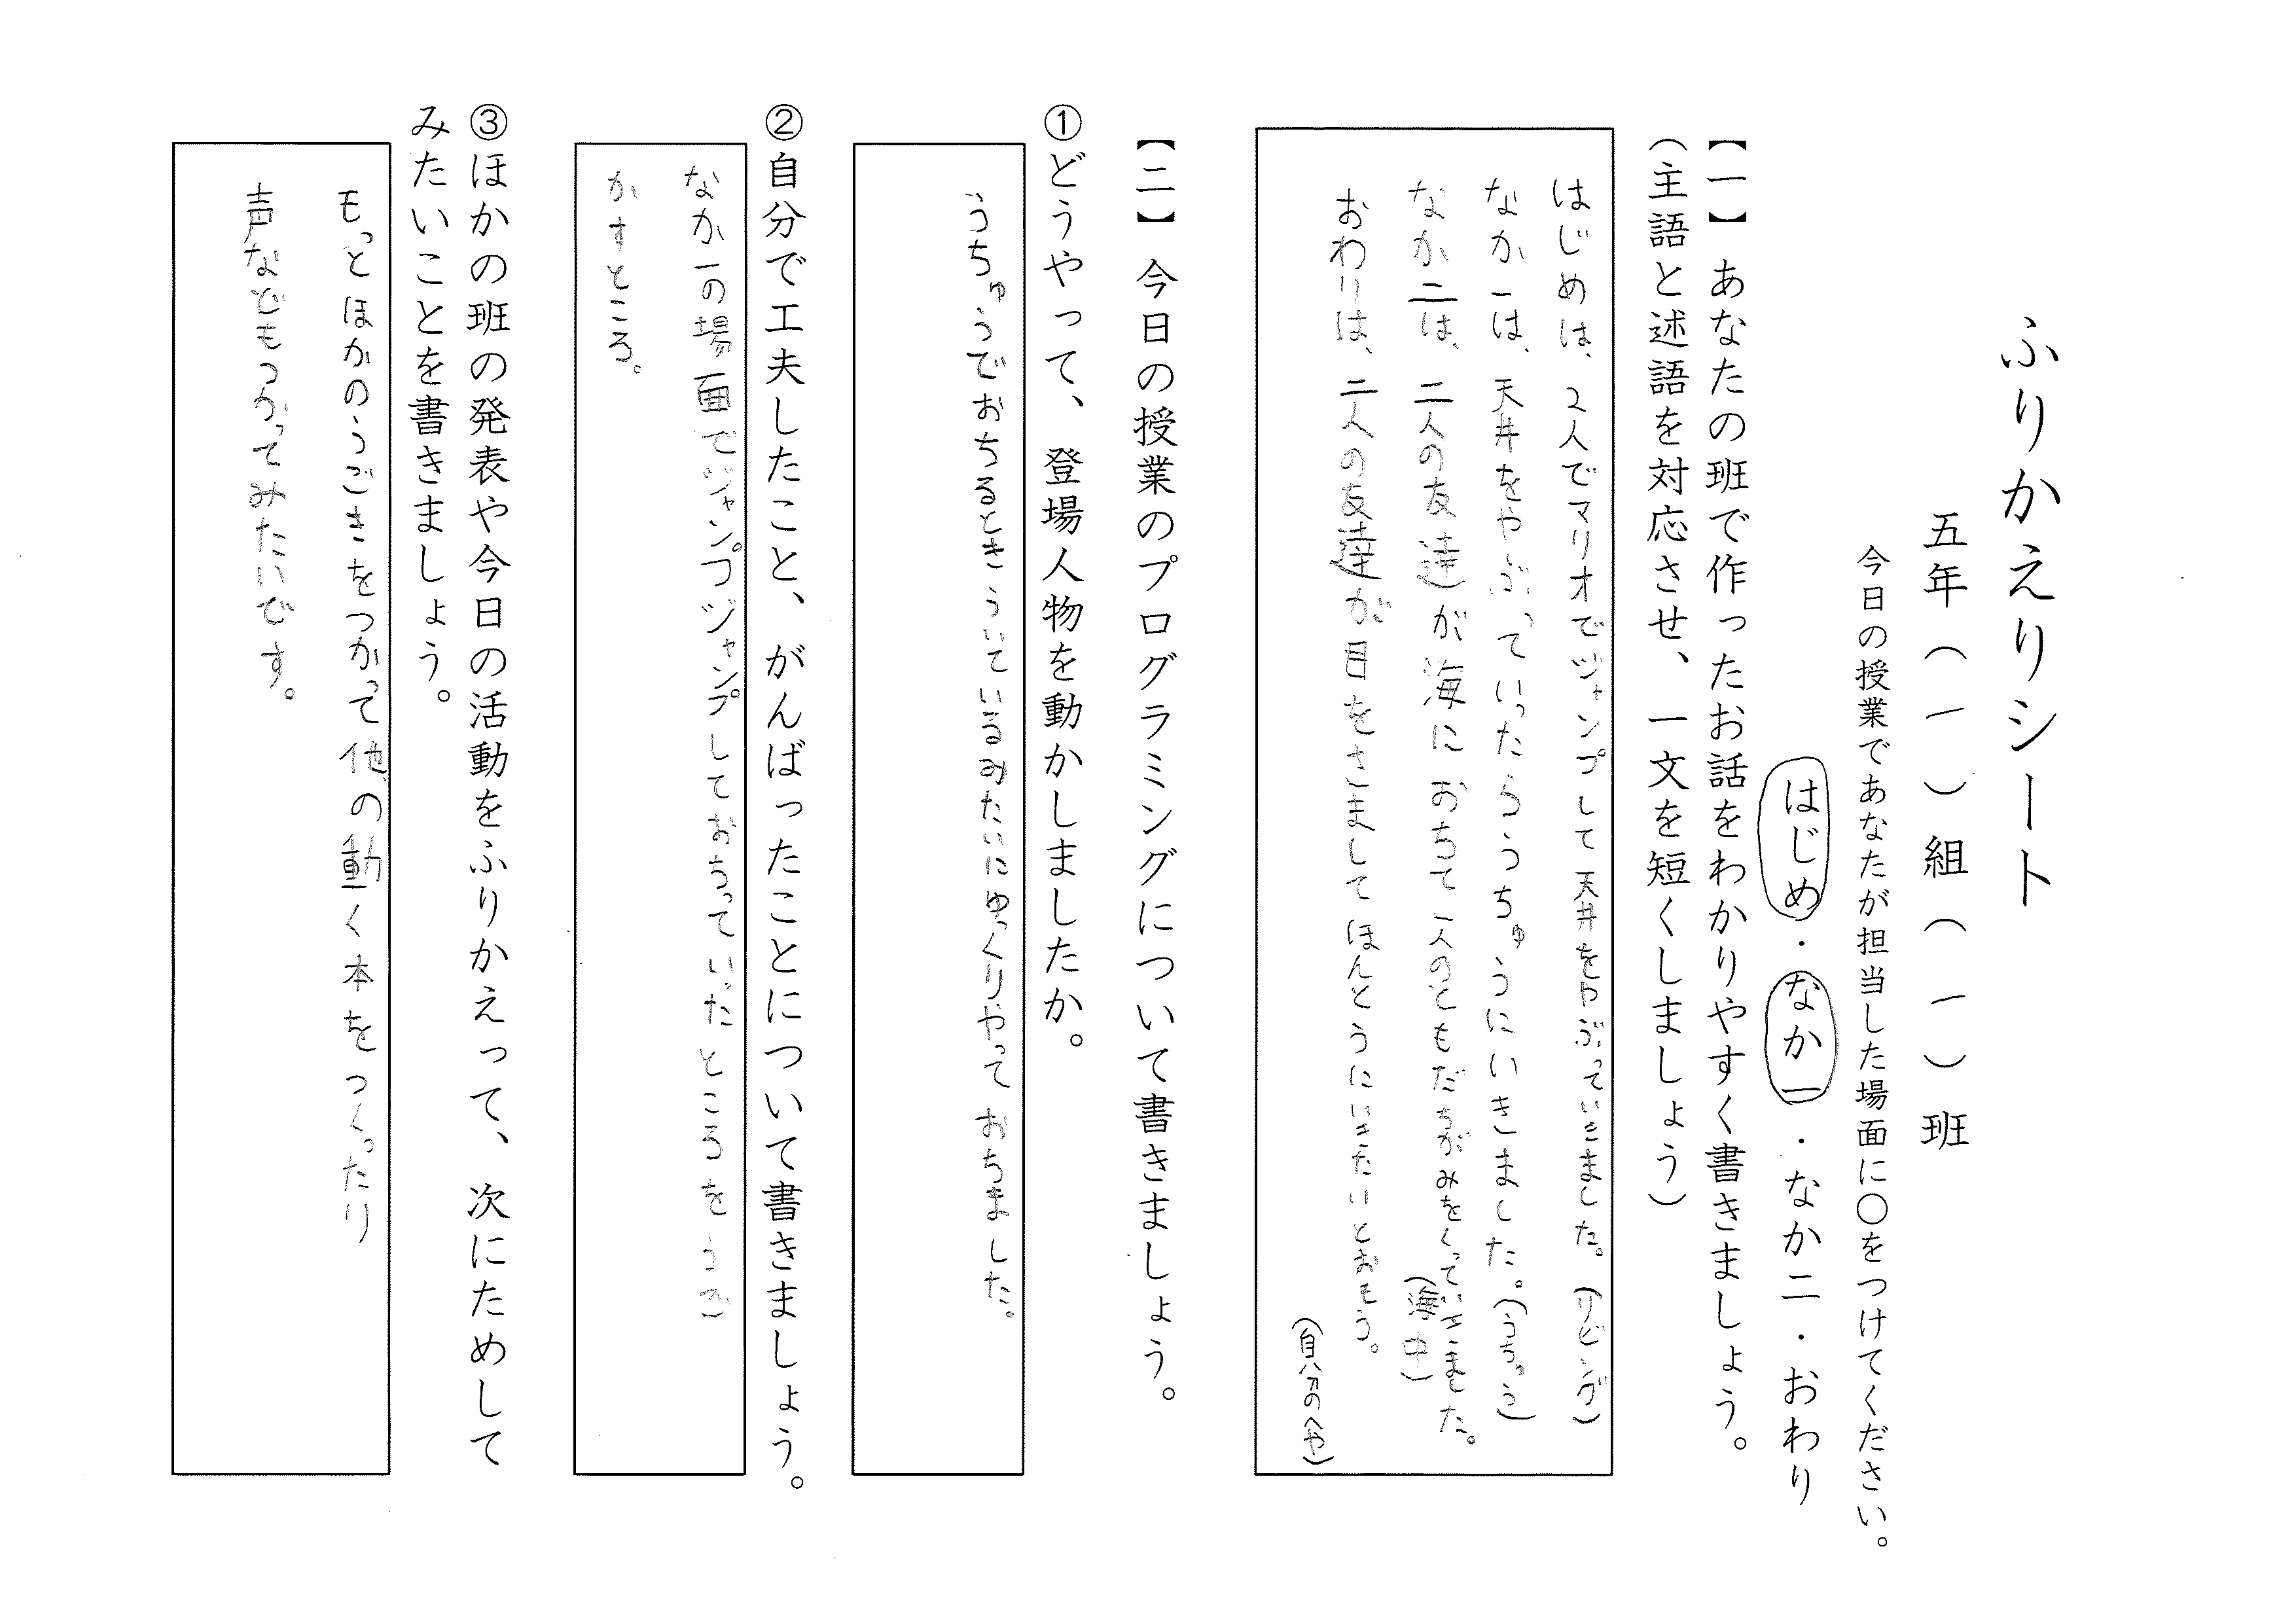 ふりかえりシート
五年（一）組（一）班
今日の授業であなたが担当した場面に○をつけてください。
はじめ・なか一・なか二・おわり
【一】あなたの班で作ったお話をわかりやすく書きましょう。
（主語と述語を対応させ、一文を短くしましょう）
はじめは、2人でマリオでジャンプして天井をやぶっていきました。（リビング）
なか一は、天井をやぶっていったらうちゅうにいきました。（うちゅう）
なか二は、二人の友達が海におちて一人のともだちがみをくっていきました。（海中）
おわりは、二人の友達が目をさましてほんとうにいきたいとおもう。
（自分のへや）
【二】今日の授業のプログラミングについて書きましょう。
①どうやって、登場人物を動かしましたか。
うちゅうでおちるときういているみたいにゆっくりやっておちました。
②自分で工夫したこと、がんばったことについて書きましょう。
なか一の場面でジャンプジャンプしておちっていったところをうご
かすところ。
③ほかの班の発表や今日の活動をふりかえって、次にためして
みたいことを書きましょう。
もっとほかのうごきをつかって他の動く本をつくったり
声などもつかってみたいです。